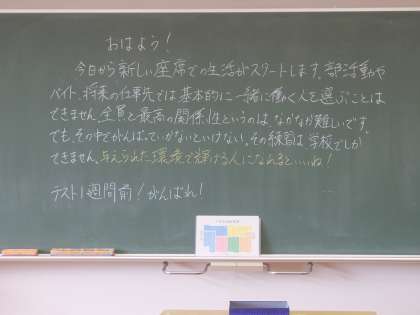 おはよう!
今日から新しい座席での生活がスタートします。部活動や
バイト、将来の仕事先では基本的に一緒に働く人を選ぶことは
できません。全員と最高の関係性というのはなかなか難しいです
でも、その中でがんばっていかないといけない。その練習は学校でしか
できません。与えられた環境で輝ける人になれるといいね!
テスト1週間前!がんばれ!